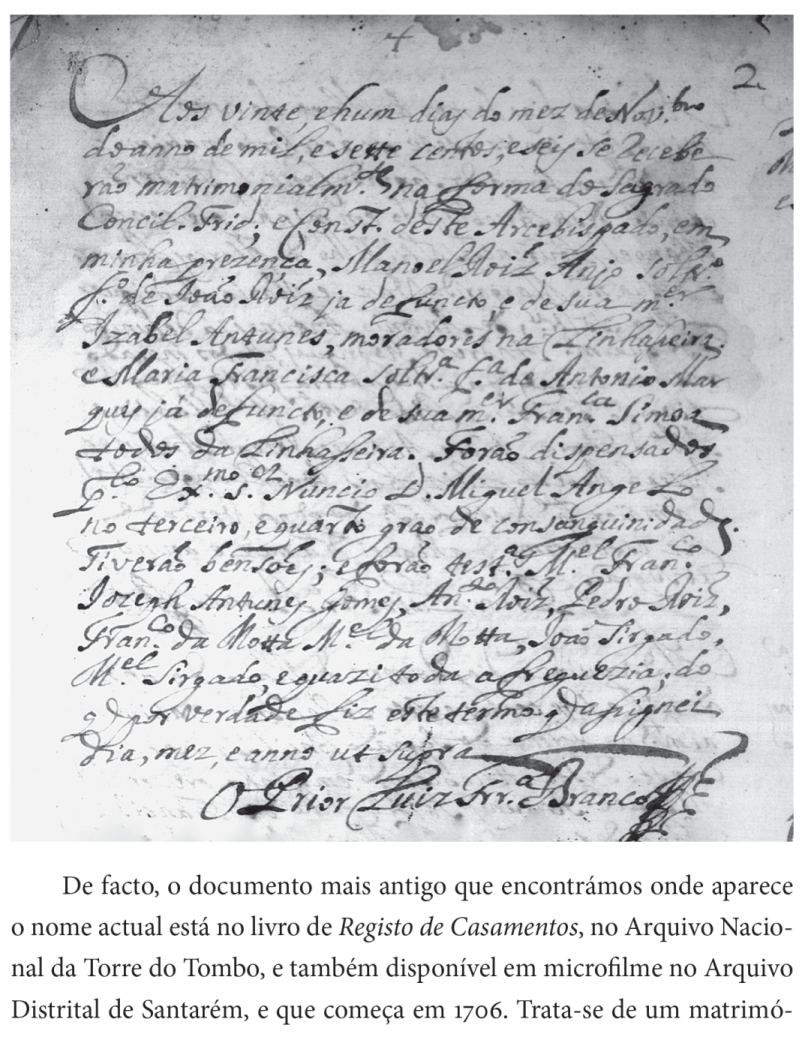 2.
Aos vinte, e hum dias do mez de Nov.bro
do anno de mil, e sette centos, e seis se recebe
rão matrimonialm.te na forma do Sagrado
Concil. Trid., e Const. deste Arcebispado, em
minha prezença, Manoel Roiz Anjo soltr.o
f.o de João Roiz ja defuncto, e de sua m.er
Izabel Antunes, moradores na Linhaseira.
e Maria Francisca soltr.a f.a de Antonio Mar
ques já defuncto, e de sua m.er Fran.ca Simoa
todos da Linhasseira. Forão dispensados
p.lo Ex.mo S.or Nuncio D. Miguel Angelo
no terceiro, e quarto grao de consanguinidade.
Tiverão bensoes; e forão test.as M.el Fran.co
Jozeph Antunes Gomes, An.to Roiz, Pedro Roiz,
Fran.co da Motta M.el da Motta, João Sirgado,
M.el Sirgado, e quazi toda a freguezia, do
q por verdade fiz este termo q assignei
dia, mez, e anno ut supra
O Prior Luiz Frr.a Branco
De facto, o documento mais antigo que encontrámos onde aparece
o nome actual está no livro de Registo de Casamentos, no Arquivo Nacio-
nal da Torre do Tombo, e também disponível em microfilme no Arquivo
Distrital de Santarém, e que começa em 1706. Trata-se de um matrimó-